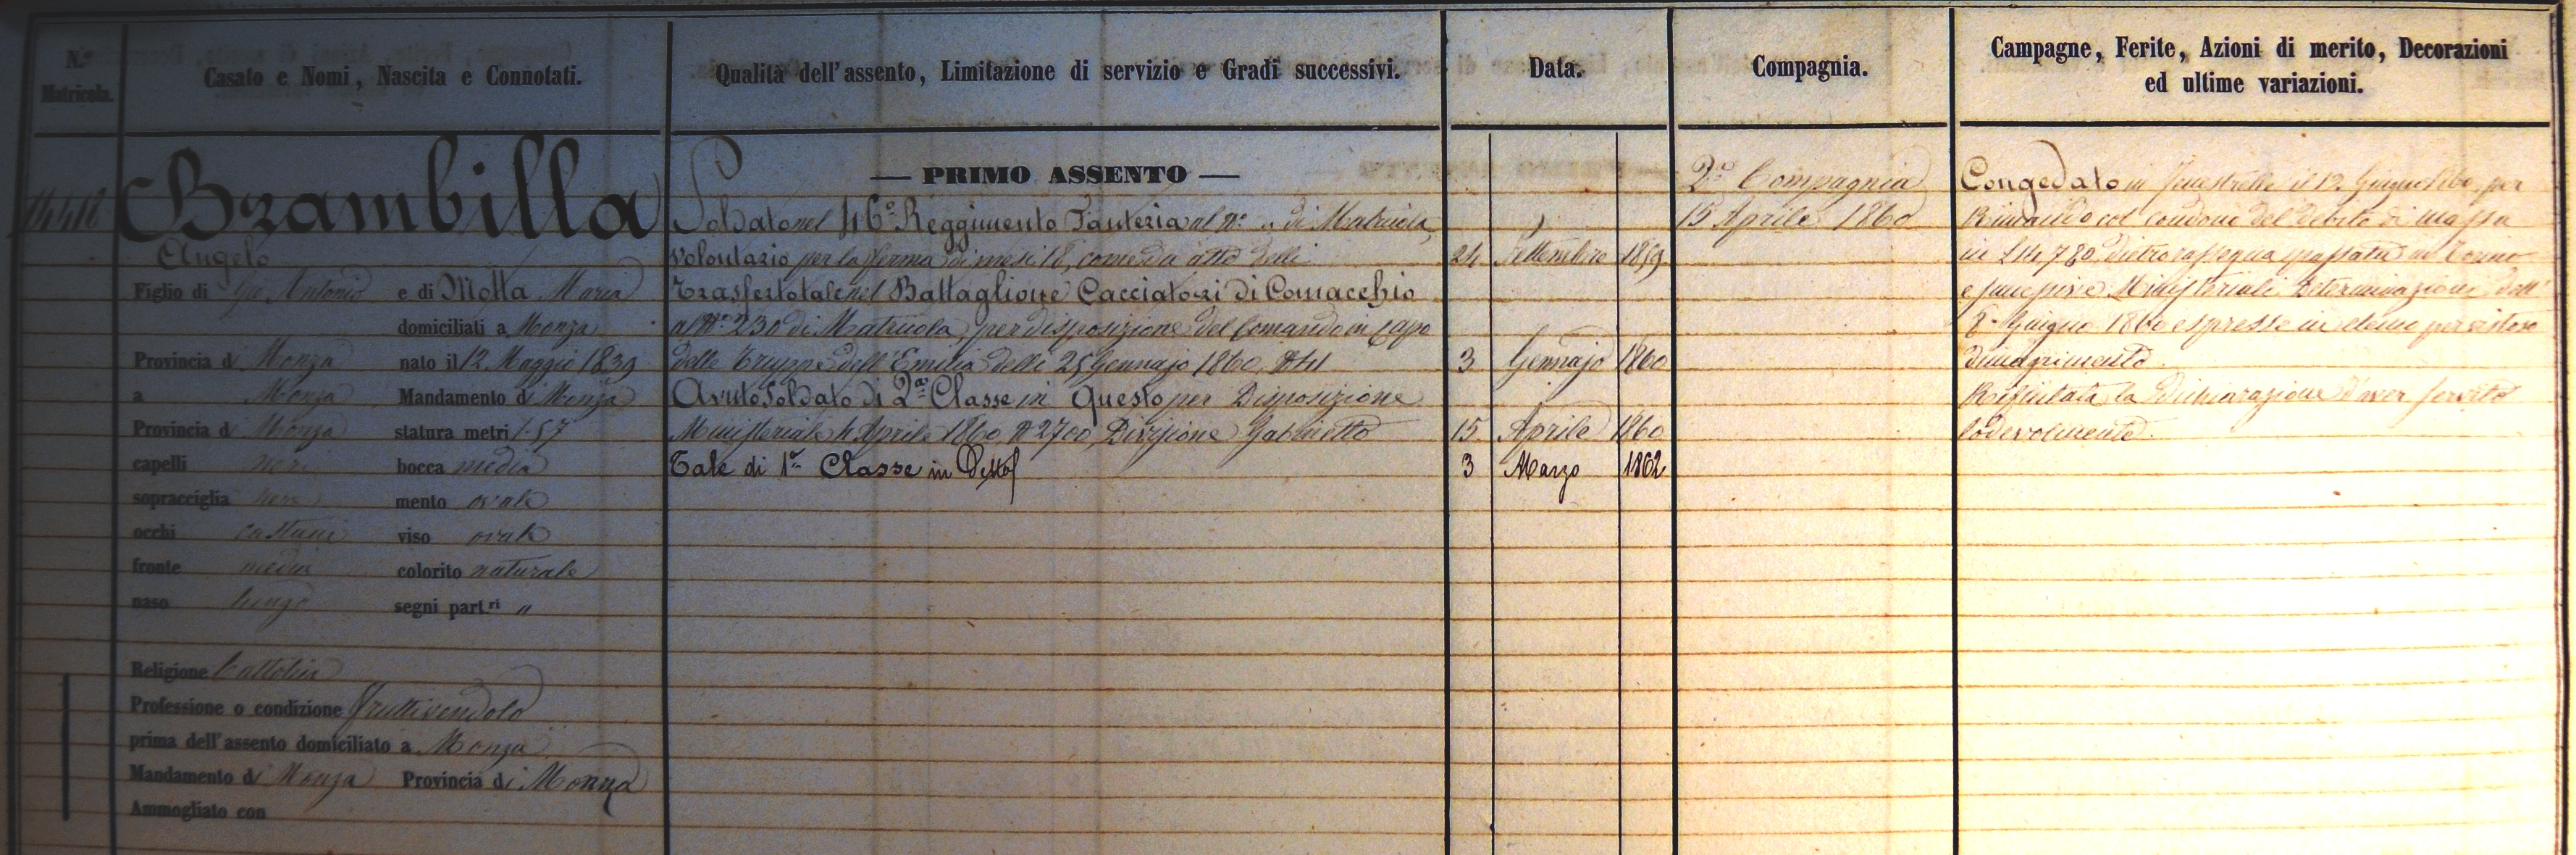 N.º Matricola.
Casato e Nomi, Nascita e Connotati.
Qualità dell'assento, Limitazione di servizio e Gradi successivi.
Data.
Compagnia.
Campagne, Ferite, Azioni di merito, Decorazioni
ed ultime variazioni.
Brambilla
Angelo
Figlio di Gio Antonio e di Motta Maria
domiciliati a Monza
Provincia di Monza nato il 12 Maggio 1839
a Monza Mandamento di Monza
Provincia di Monza statura metri 1.57
capelli neri bocca media
sopracciglia nere mento ovale
occhi castani viso ovale
fronte media colorito naturale
naso lungo segni part.ri "
Religione Cattolica
Professione o condizione fruttivendolo
prima dell'assento domiciliato a Monza
Mandamento di Monza Provincia di Monza
Ammogliato con
— PRIMO ASSENTO —
Soldato nel 46º Reggimento Fanteria al Nº " di Matricola
volontario per la ferma di mesi 18, come da atto delli
24 Settembre 1859
Trasferto tale nel Battaglione Cacciatori di Comacchio
al Nº 230 di Matricola, per disposizione del Comando in Capo
delle Truppe dell'Emilia delli 25 Gennajo 1860, Nº 41
3 Gennajo 1860
Avuto Soldato di 2ª Classe in Questo per Disposizione
Ministeriale 4 Aprile 1860 Nº 2700, Divisione Gabinetto
15 Aprile 1860
Tale di 1ª Classe in Detto
3 Marzo 1862
2ª Compagnia
15 Aprile 1860
Congedato in Fenestrelle il 12 Giugno per
Rimando col condono del debito di massa
in dietro rassegna passata in
Ministeriale Determinazione dell'
8 Giugno 1860 espresse in elenco per
dimagrimento.
Rifiutata la Dichiarazione d'aver servito
lodevolmente.